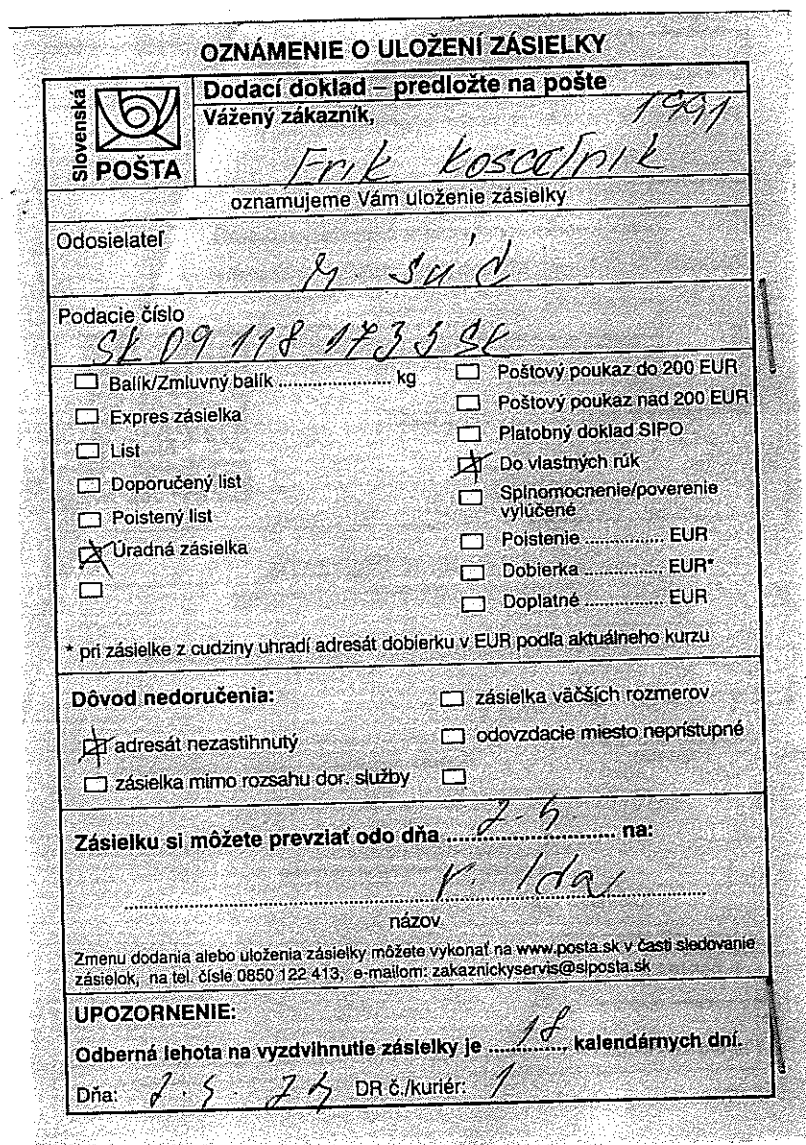 OZNÁMENIE O ULOŽENÍ ZÁSIELKY
Slovenská
POŠTA
Dodací doklad – predložte na pošte
Vážený zákazník,
1991
Erik Koscelnik
oznamujeme Vám uloženie zásielky
Odosielateľ
súd
Podacie číslo
Balík/Zmluvný balík ...................... kg
Expres zásielka
List
Doporučený list
Poistený list
Úradná zásielka
Poštový poukaz do 200 EUR
Poštový poukaz nad 200 EUR
Platobný doklad SIPO
Do vlastných rúk
Splnomocnenie/poverenie
vylúčené
Poistenie ............... EUR
Dobierka ............... EUR*
Doplatné ............... EUR
* pri zásielke z cudziny uhradí adresát dobierku v EUR podľa aktuálneho kurzu
Dôvod nedoručenia:
adresát nezastihnutý
zásielka mimo rozsahu dor. služby
zásielka väčších rozmerov
odovzdacie miesto neprístupné
Zásielku si môžete prevziať odo dňa ........................ na:
Ida
názov
Zmenu dodania alebo uloženia zásielky môžete vykonať na www.posta.sk v časti sledovanie
zásielok, na tel. čísle 0850 122 413, e-mailom: zakaznickyservis@slposta.sk
UPOZORNENIE:
Odberná lehota na vyzdvihnutie zásielky je 18 kalendárnych dní.
Dňa: DR č./kuriér: 1